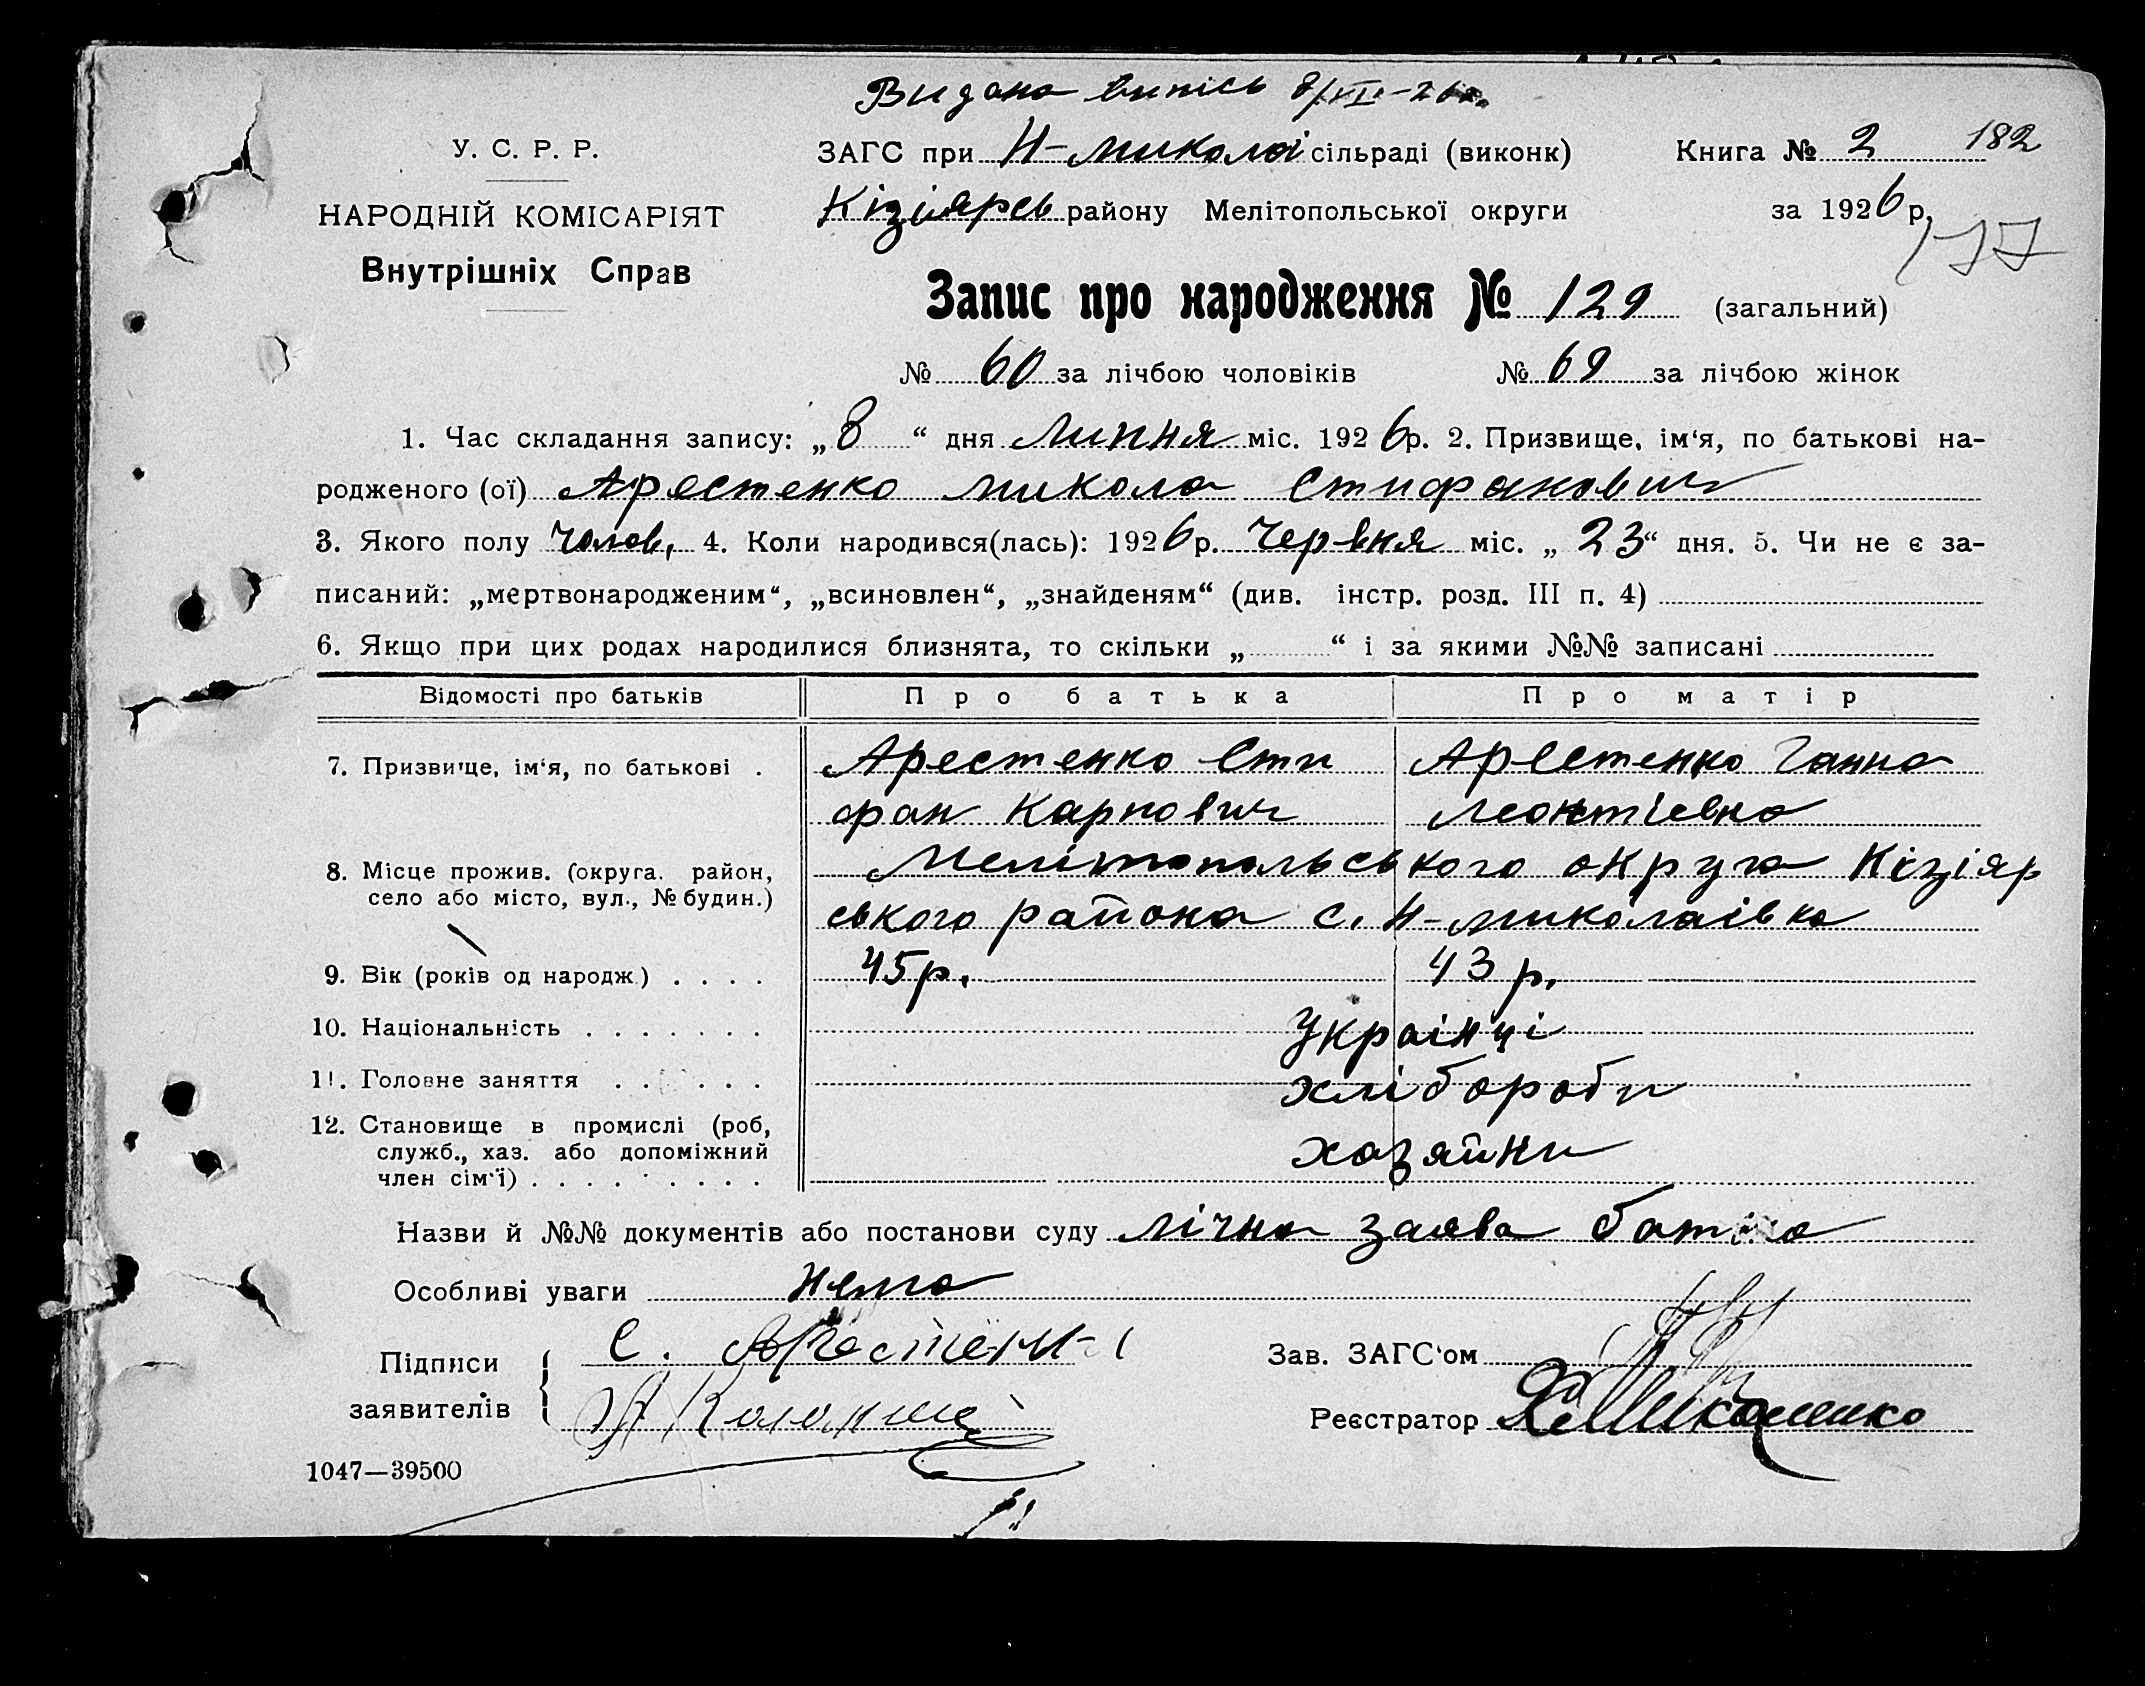 Видана випись 8/VII-26 р.
У. С. Р. Р.
НАРОДНІЙ КОМІСАРІЯТ
Внутрішніх Справ
ЗАГС при Н-Миколаї сільраді (виконк)
Книга № 2 182
Кізіярсь району Мелітопольської округи
за 1926 р.
177
Запис про народження № 129 (загальний)
№ 60 за лічбою чоловіків № 69 за лічбою жінок
1. Час складання запису: „8“ дня Липня міс. 1926 р. 2. Призвище, ім'я, по батькові на-
родженого (ої) Арестенко Микола Стифанович
3. Якого полу Чолов, 4. Коли народився(лась): 1926 р. Червня міс. „23“ дня. 5. Чи не є за-
писаний: „мертвонародженим“, „всиновлен“, „знайденям“ (див. інстр. розд. III п. 4)
6. Якщо при цих родах народилися близнята, то скільки „ “ і за якими №№ записані
Відомості про батьків Про батька Про матір
7. Призвище, ім'я, по батькові . Арестенко Сти Арестенко Ганна
фан Карпович Леонтіевна
8. Місце прожив. (округа, район, Мелітопольського округа Кізіяр
село або місто, вул., № будин.) ського района с. Н-Миколаівка
9. Вік (років од народж.) . . . . 45 р. 43 р.
10. Національність . . . . . . . Украінці
11. Головне заняття . . . . . . хлібороби
12. Становище в промислі (роб,
служб., хаз. або допоміжний хазяйни
член сім'ї) . . . . . . . . . .
Назви й №№ документів або постанови суду лічна заява батька
Особливі уваги нема
Підписи С. Арестенк
заявителів
Зав. ЗАГС'ом
Реєстратор
1047—39500